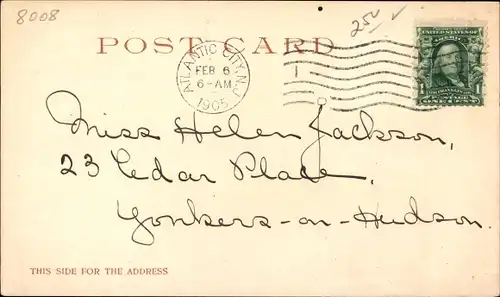 8008
25¢ ✓
POST CARD
ATLANTIC CITY, N.J.
FEB 6
6-AM
1905
1
UNITED STATES OF AMERICA
1 1
POSTAGE
ONE CENT
Miss Helen Jackson,
23 Cedar Place,
Yonkers-on-Hudson.
THIS SIDE FOR THE ADDRESS